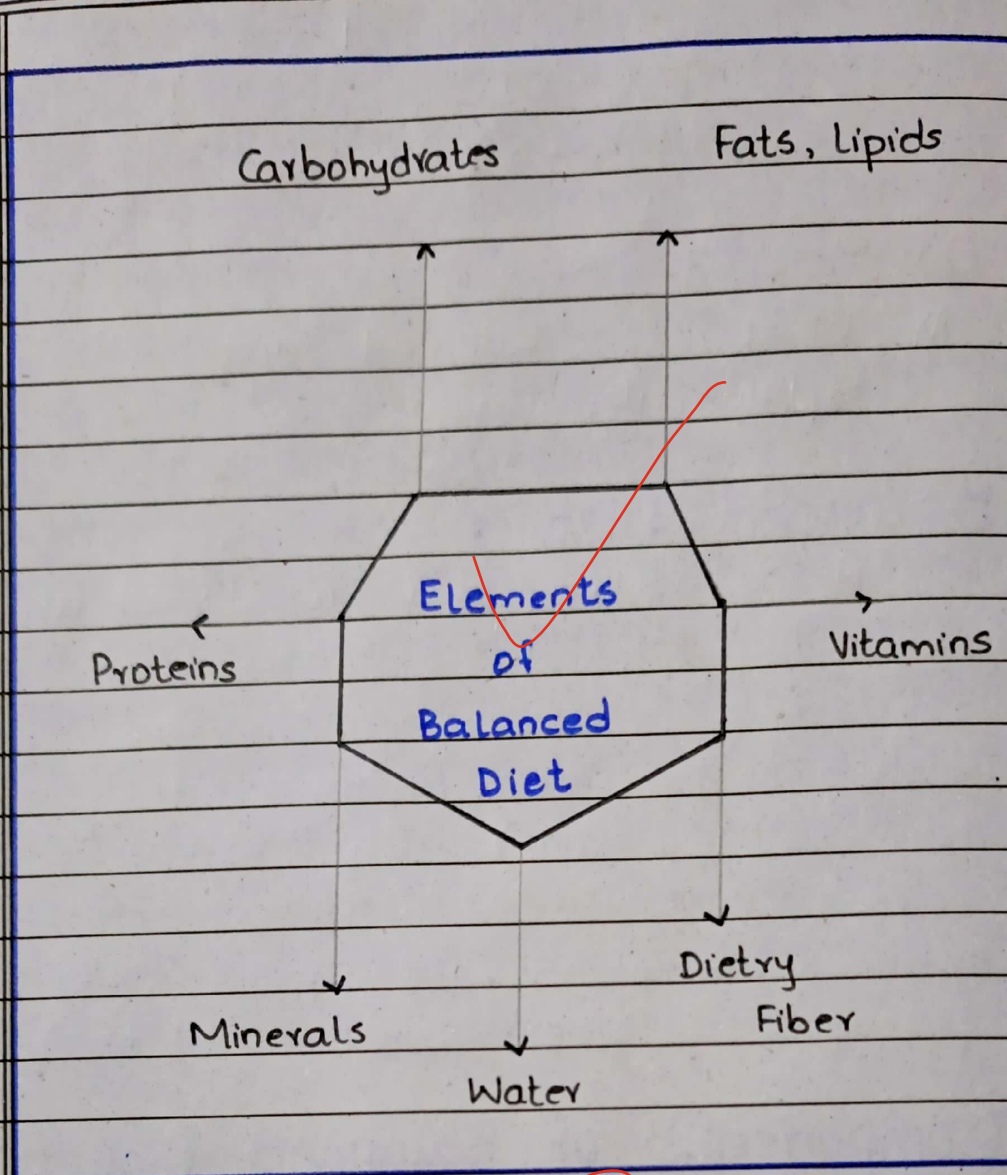 Carbohydrates
Fats, Lipids
Elements
of
Balanced
Diet
Proteins
Vitamins
Minerals
Water
Dietry
Fiber